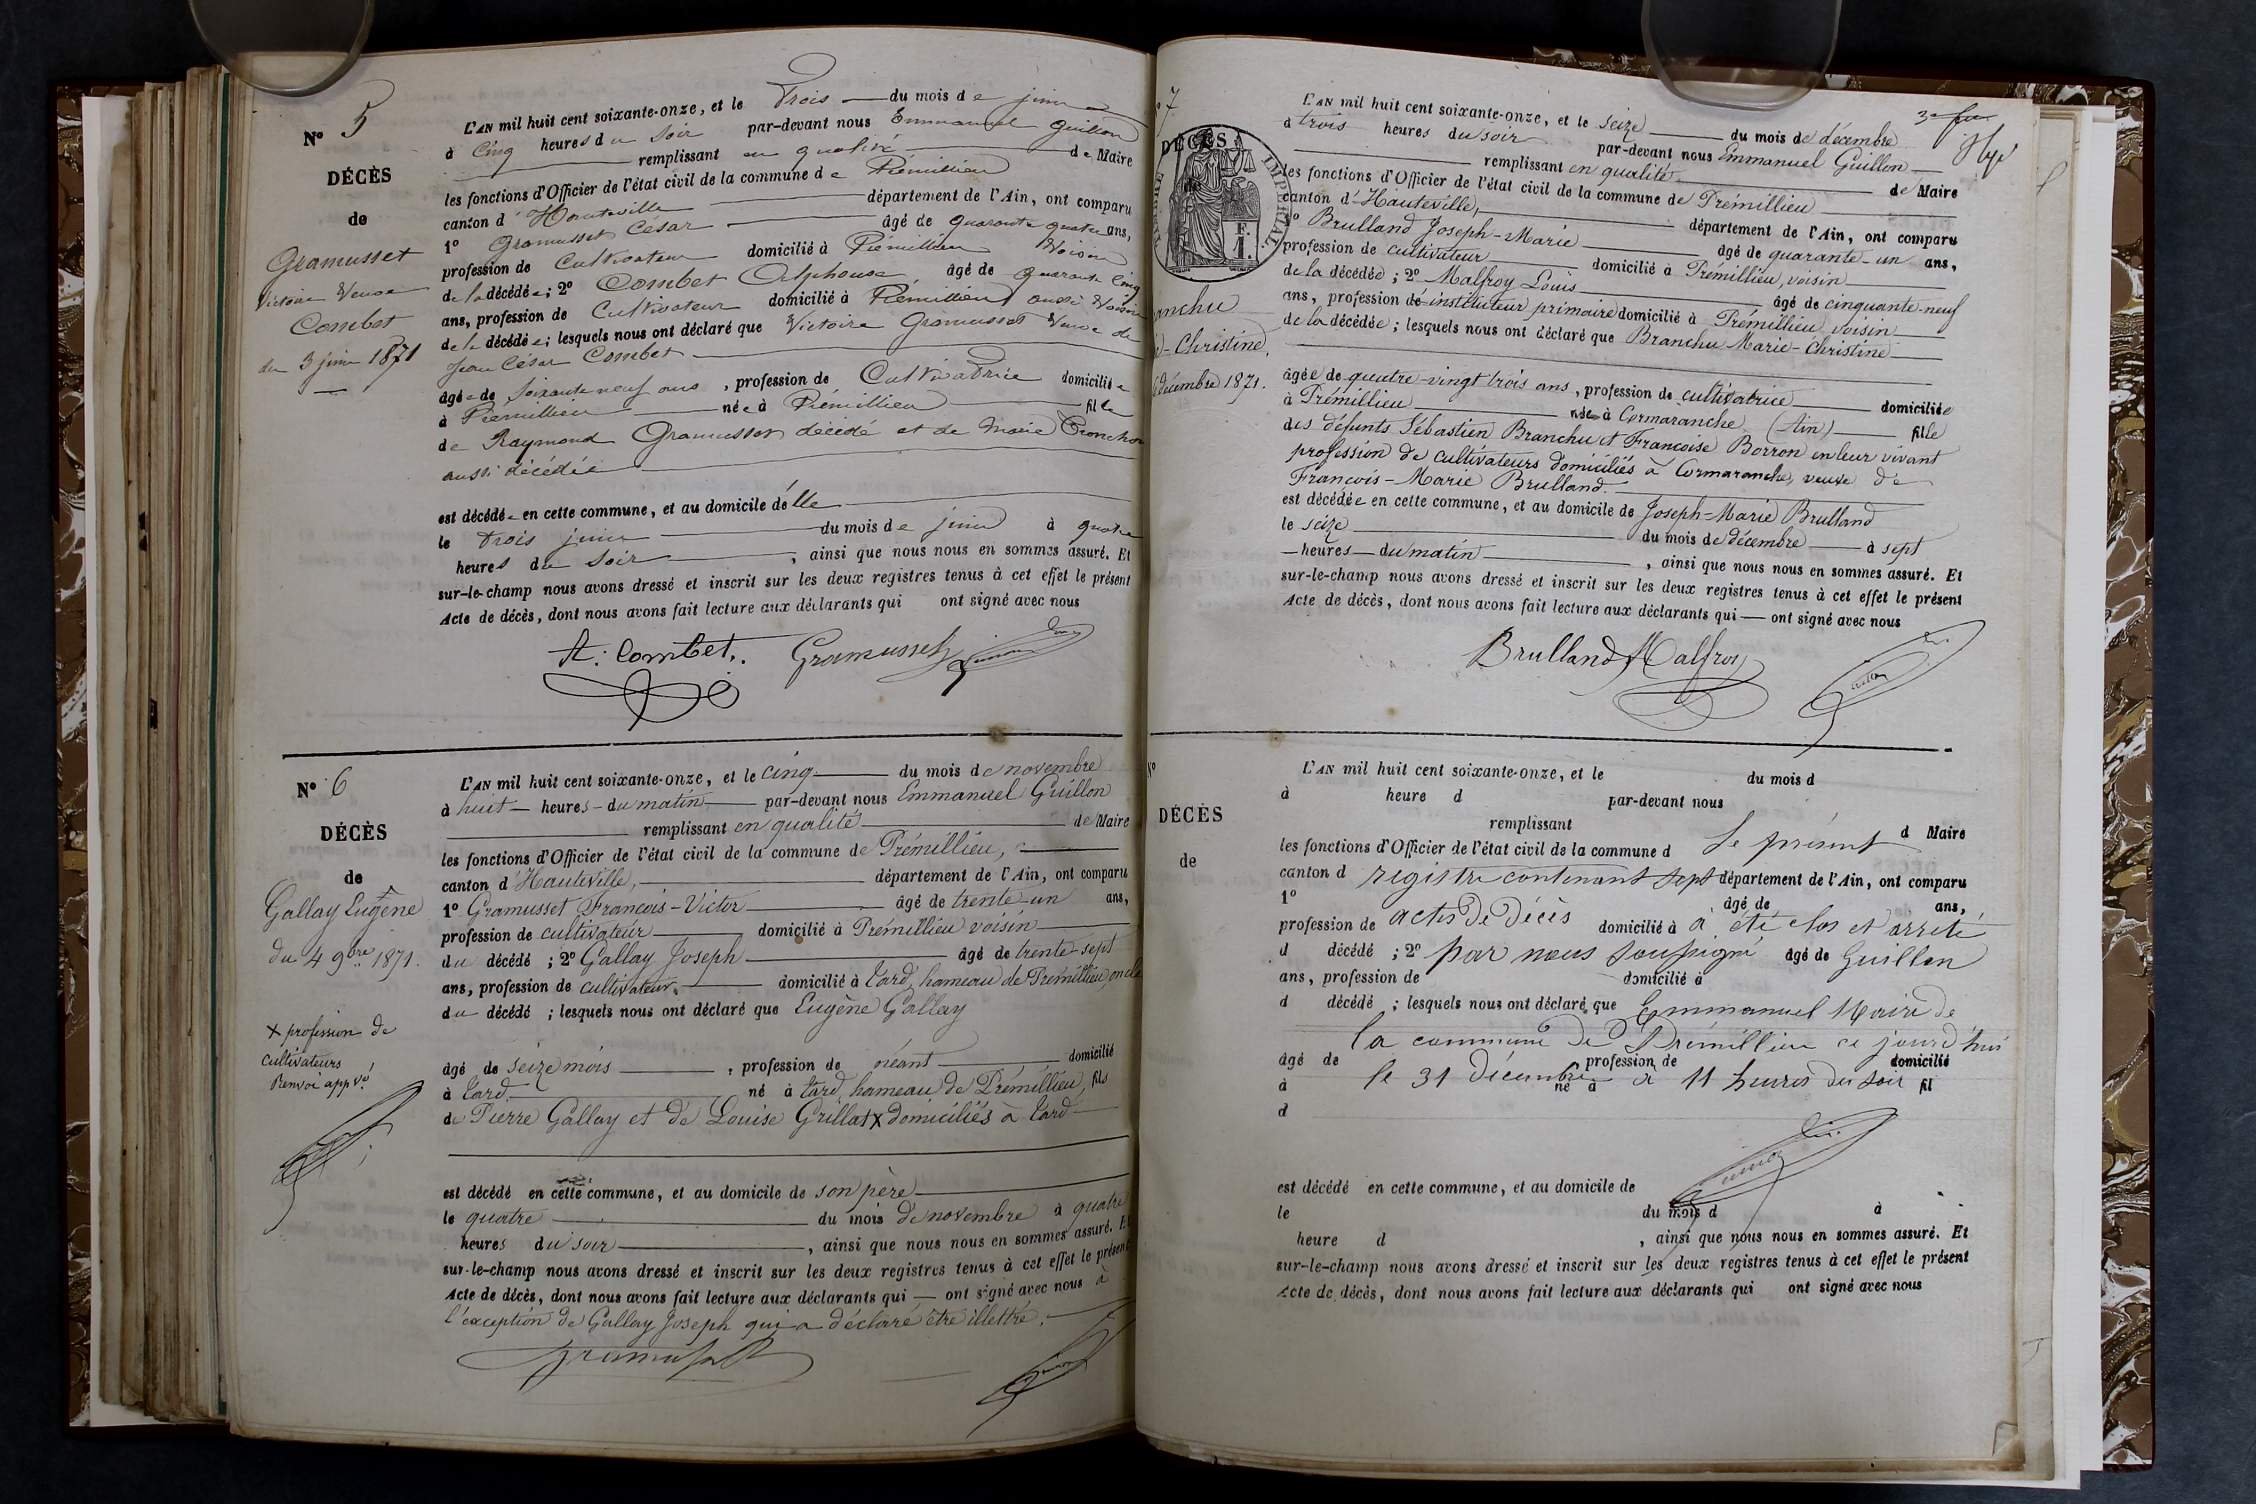 N° 5
DÉCÈS
de
Gramusset
Victoire Veuve
Combet
du 3 juin 1871
L'AN mil huit cent soixante-onze, et le Trois du mois de juin
à Cinq heures du Soir par-devant nous Emmanuel Guillon
remplissant en qualité de Maire
les fonctions d'Officier de l'état civil de la commune de Prémillieu
canton d'Hauteville département de l'Ain, ont comparu
1° Gramusset César âgé de quarante quatre ans,
profession de Cultivateur domicilié à Prémillieu Voisin
de la décédée; 2° Combet Alphonse âgé de quarante cinq
ans, profession de Cultivateur domicilié à Prémillieu aussi Voisin
de la décédée; lesquels nous ont déclaré que Victoire Gramusset Veuve de
Jean César Combet
âgée de Soixante neuf ans, profession de Cultivatrice domiciliée
à Prémillieu née à Prémillieu fille
de Raymond Gramusset décédé et de Marie
aussi décédée
est décédée en cette commune, et au domicile d'elle
le trois juin du mois de juin à quatre
heures du Soir, ainsi que nous nous en sommes assuré. Et
sur-le-champ nous avons dressé et inscrit sur les deux registres tenus à cet effet le présent
Acte de décès, dont nous avons fait lecture aux déclarants qui ont signé avec nous
A. Combet. Gramusset
N° 6
DÉCÈS
de
Gallay Eugène
du 4 9bre 1871.
x profession de
cultivateurs
Renvoi appvé
L'AN mil huit cent soixante-onze, et le cinq du mois de novembre
à huit heures du matin par-devant nous Emmanuel Guillon
remplissant en qualité de Maire
les fonctions d'Officier de l'état civil de la commune de Prémillieu,
canton d'Hauteville, département de l'Ain, ont comparu
1° Gramusset François-Victor âgé de trente-un ans,
profession de cultivateur domicilié à Prémillieu voisin
du décédé; 2° Gallay Joseph âgé de trente sept
ans, profession de cultivateur domicilié à Lard, hameau de Prémillieu, oncle
du décédé; lesquels nous ont déclaré que Eugène Gallay
âgé de seize mois, profession de néant domicilié
à Lard né à Lard, hameau de Prémillieu, fils
de Pierre Gallay et de Louise Grillat x domiciliés à Lard
est décédé en cette commune, et au domicile de son père
le quatre du mois de novembre à quatre
heures du soir, ainsi que nous nous en sommes assuré. Et
sur-le-champ nous avons dressé et inscrit sur les deux registres tenus à cet effet le présent
Acte de décès, dont nous avons fait lecture aux déclarants qui ont signé avec nous à
l'exception de Gallay Joseph qui a déclaré être illettré.
Gramusset
7
DÉCÈS
TIMBRE IMPÉRIAL
F.
1.
anchu
-Christine,
décembre 1871.
L'AN mil huit cent soixante-onze, et le seize du mois de décembre
à trois heures du soir par-devant nous Emmanuel Guillon
remplissant en qualité de Maire
les fonctions d'Officier de l'état civil de la commune de Prémillieu
canton d'Hauteville, département de l'Ain, ont comparu
1° Brulland Joseph-Marie âgé de quarante-un ans,
profession de cultivateur domicilié à Prémillieu, voisin
de la décédée; 2° Malfroy Louis âgé de cinquante-neuf
ans, profession d'instituteur primaire domicilié à Prémillieu voisin
de la décédée; lesquels nous ont déclaré que Branchu Marie-Christine
âgée de quatre-vingt trois ans, profession de cultivatrice domiciliée
à Prémillieu née à Cormaranche (Ain) fille
des défunts Sébastien Branchu et Françoise Borron en leur vivant
profession de cultivateurs domiciliés à Cormaranche, veuve de
François-Marie Brulland.
est décédée en cette commune, et au domicile de Joseph-Marie Brulland
le seize du mois de décembre à sept
heures du matin, ainsi que nous nous en sommes assuré. Et
sur-le-champ nous avons dressé et inscrit sur les deux registres tenus à cet effet le présent
Acte de décès, dont nous avons fait lecture aux déclarants qui ont signé avec nous
Brulland Malfroy
N°
DÉCÈS
de
L'AN mil huit cent soixante-onze, et le du mois d
à heure d par-devant nous
remplissant d Maire
les fonctions d'Officier de l'état civil de la commune d Le présent
canton d registre contenant sept département de l'Ain, ont comparu
1° âgé de ans,
profession de actes de décès domicilié à a été clos et arrêté
d décédé ; 2° par nous soussigné âgé de Guillon
ans, profession de domicilié à
d décédé ; lesquels nous ont déclaré que Emmanuel Maire de
la commune de Prémillieu ce jourd'hui
âgé de profession de domicilié
à le 31 Décembre né à à 11 heures du soir fil
d
est décédé en cette commune, et au domicile de
le du mois d à
heure d , ainsi que nous nous en sommes assuré. Et
sur-le-champ nous avons dressé et inscrit sur les deux registres tenus à cet effet le présent
Acte de décès, dont nous avons fait lecture aux déclarants qui ont signé avec nous